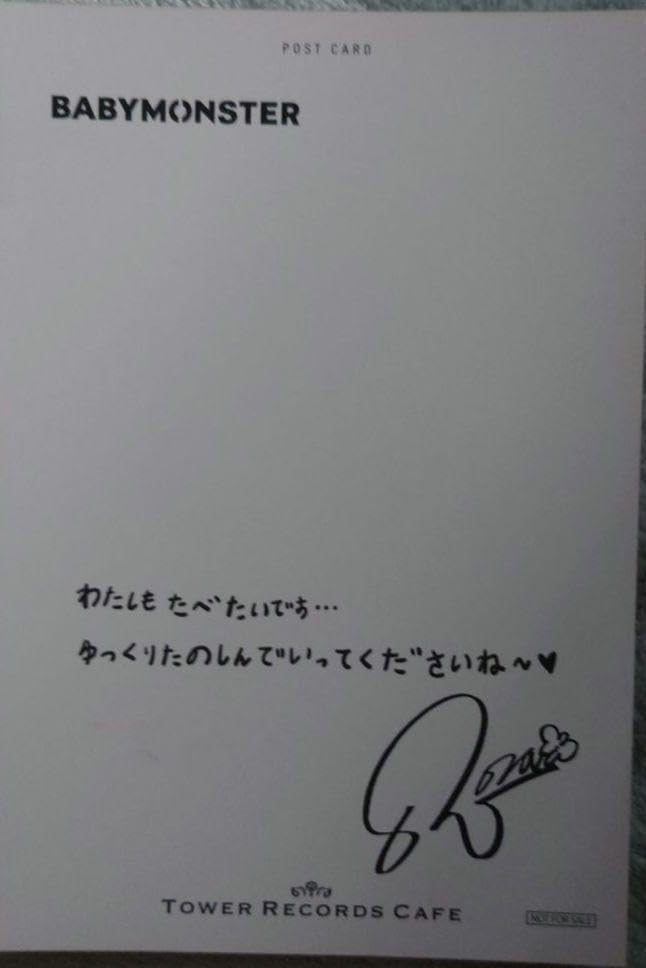 POST CARD
BABYMONSTER
わたしも たべたいです…
ゆっくりたのしんでいってくださいね～♥
TOWER RECORDS CAFE
NOT FOR SALE